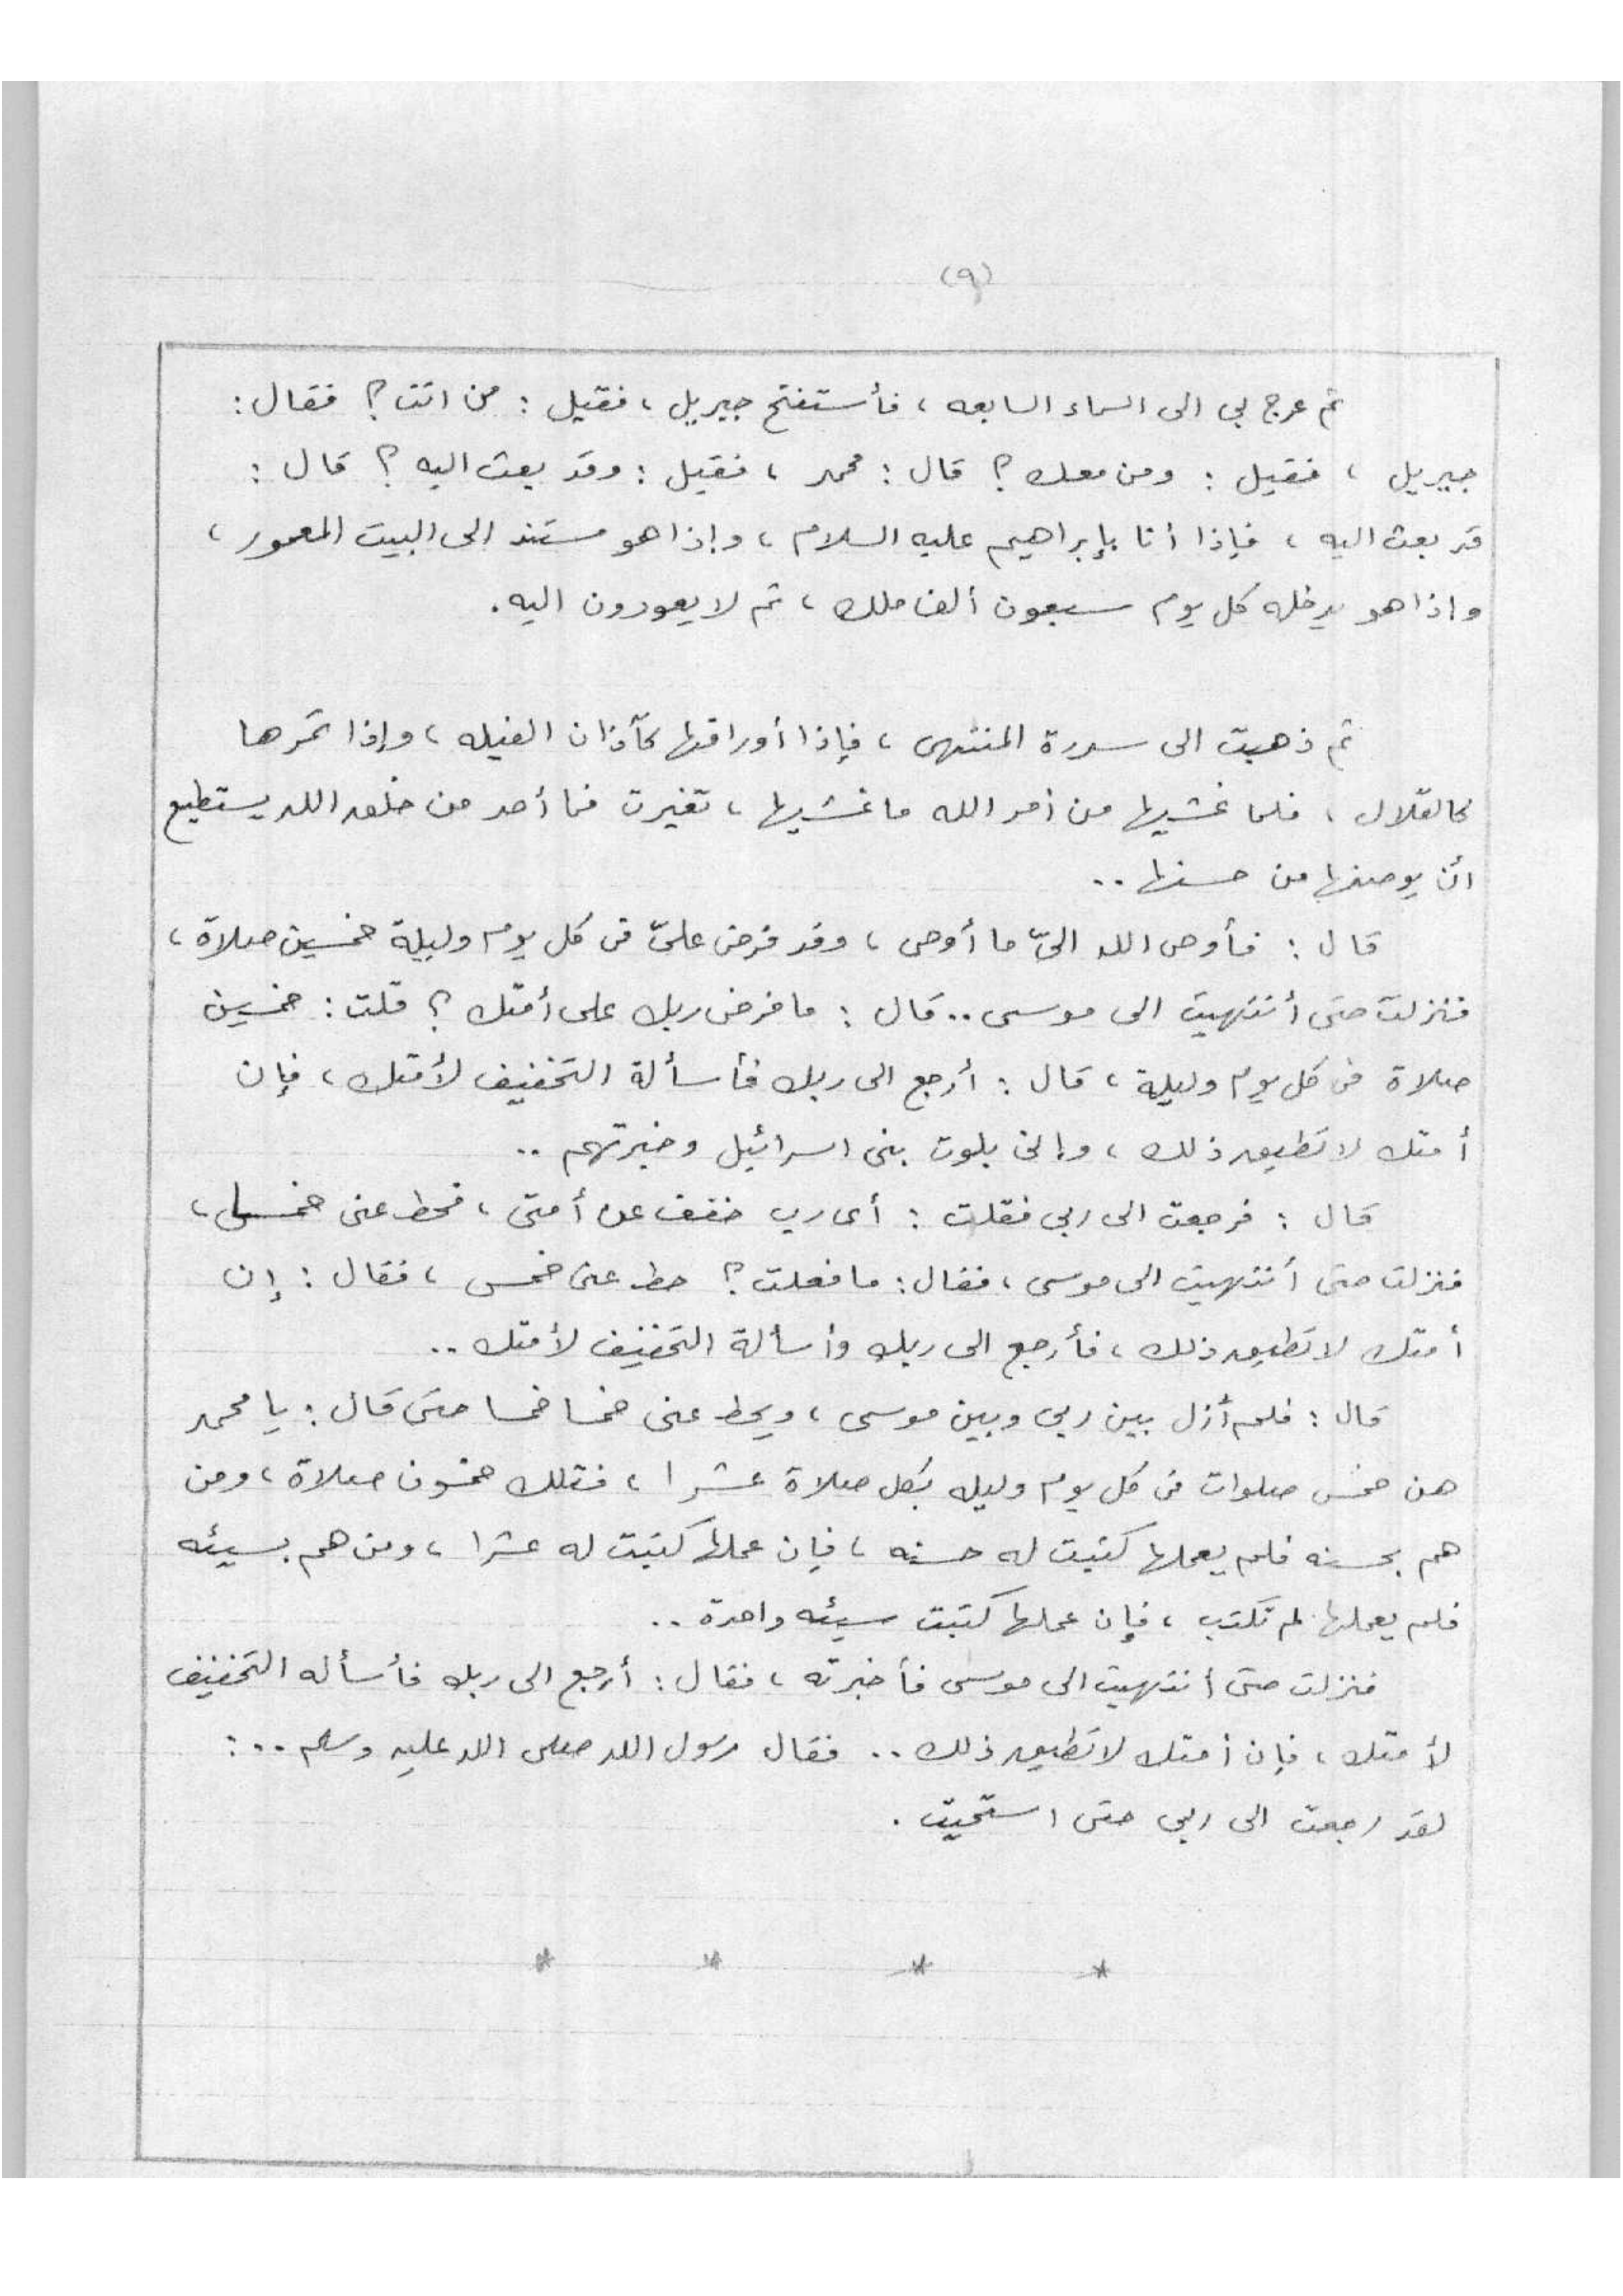 (٩)
ثم عرج بي الى السماء السابعه ، فأستفتح جبريل ، فقيل : من انت ؟ فقال :
جبريل ، فقيل : ومن معك ؟ قال : محمد ، فقيل : وقد بعث اليه ؟ قال :
قد بعث اليه ، فإذا أنا بإبراهيم عليه السلام ، وإذا هو مستند الى البيت المعمور ،
واذا هو يدخله كل يوم سبعون ألف ملك ، ثم لا يعودون اليه .
ثم ذهبت الى سدرة المنتهى ، فإذا أوراقها كآذان الفيله ، وإذا ثمرها
كالقلال ، فلما غشيها من أمر الله ما غشيها ، تغيرت فما أحد من خلق الله يستطيع
أن يوصفها من حسنها ..
قال : فأوحى الله اليّ ما أوحى ، وقد فرض عليّ في كل يوم وليلة خمسين صلاة ،
فنزلت حتى أنتهيت الى موسى .. قال : ما فرض ربك على أمتك ؟ قلت : خمسين
صلاة في كل يوم وليلة ، قال : أرجع الى ربك فأسألة التخفيف لأمتك ، فإن
أمتك لا تطيق ذلك ، وإنى بلوت بنى اسرائيل وخبرتهم ..
قال : فرجعت الى ربي فقلت : أى رب خفف عن أمتى ، فحط عنى خمس ،
فنزلت حتى أنتهيت الى موسى ، فقال : ما فعلت ؟ حط عنى خمس ، فقال : إن
أمتك لا تطيق ذلك ، فأرجع الى ربك وأسألة التخفيف لأمتك ..
قال : فلم أزل بين ربي وبين موسى ، ويحط عنى خمسا خمسا حتى قال : يا محمد
هن خمس صلوات في كل يوم وليله بكل صلاة عشرا ، فتلك خمسون صلاة ، ومن
هم بحسنه فلم يعملها كتبت له حسنه ، فإن عملها كتبت له عشرا ، ومن هم بسيئه
فلم يعملها لم تكتب ، فإن عملها كتبت سيئه واحدة ..
فنزلت حتى أنتهيت الى موسى فأخبرته ، فقال : أرجع الى ربك فأسأله التخفيف
لأمتك ، فإن أمتك لا تطيق ذلك .. فقال رسول الله صلى الله عليه وسلم .. :
لقد رجعت الى ربي حتى استحيت .
* * * *